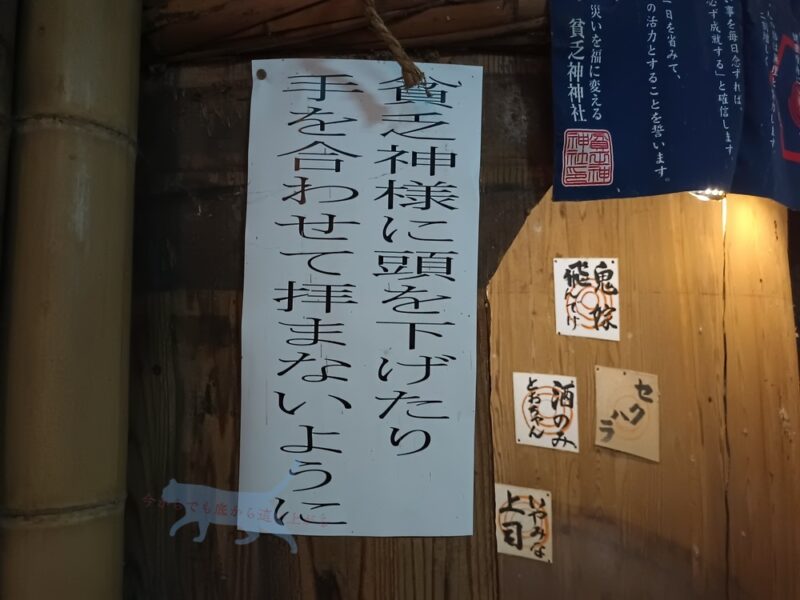 貧乏神様に頭を下げたり
手を合わせて拝まないように
事を毎日念ずれば、
必ず成就する」と確信します
一日を省みて、
の活力とすることを誓います。
災いを福に変える
貧乏神神社
鬼嫁
飛んでけ
セクハラ
酒のみ
とおちゃん
いやみな
上司
でも底から